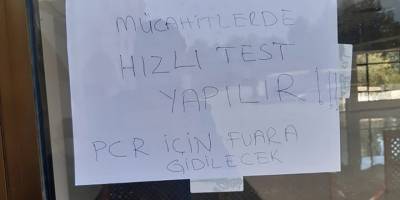 MÜCAHİTLERDE
HIZLI TEST
YAPILIR!!!
PCR İÇİN FUARA
GİDİLECEK